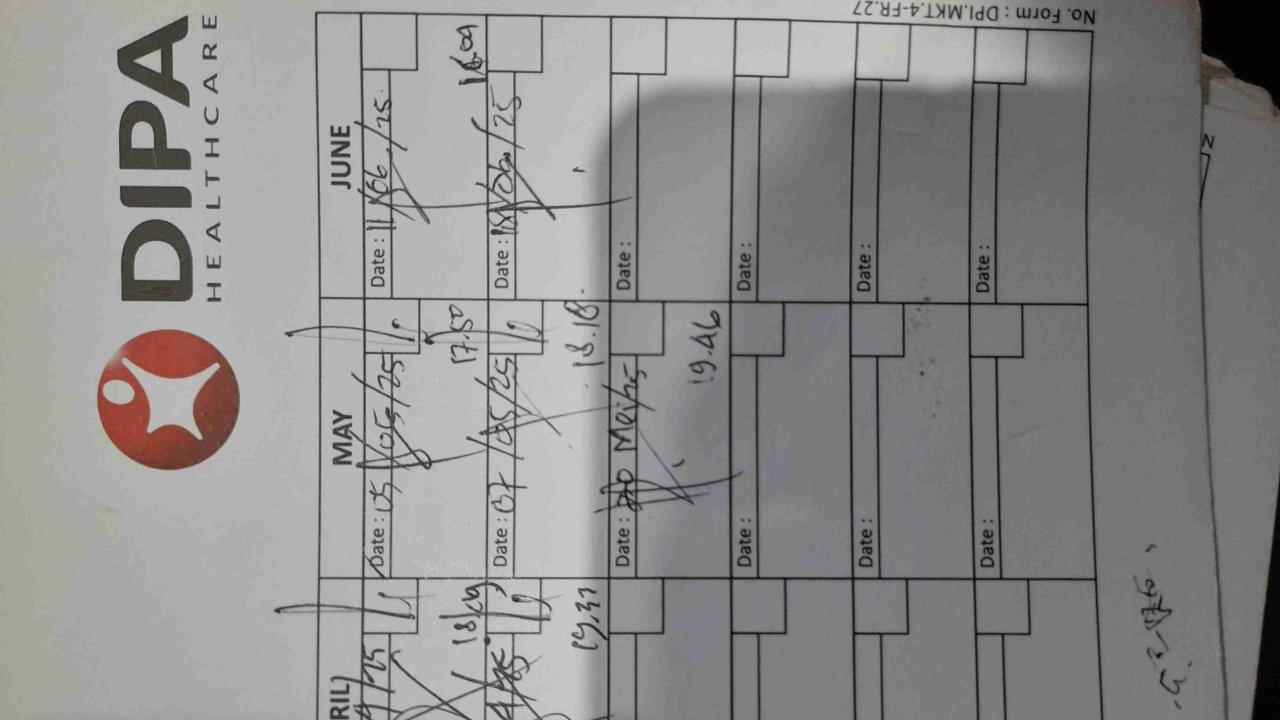 DIPA
HEALTHCARE
RIL)
MAY
JUNE
4/25
Date : 05/05/25
Date : 11/06/25
18.09
17.50
16.09
Date : 07/05/25
Date : 18/06/25
19.37
18.18
Date : Mei/25
Date :
19.46
Date :
Date :
Date :
Date :
Date :
Date :
No. Form : DPI.MKT.4-FR.27